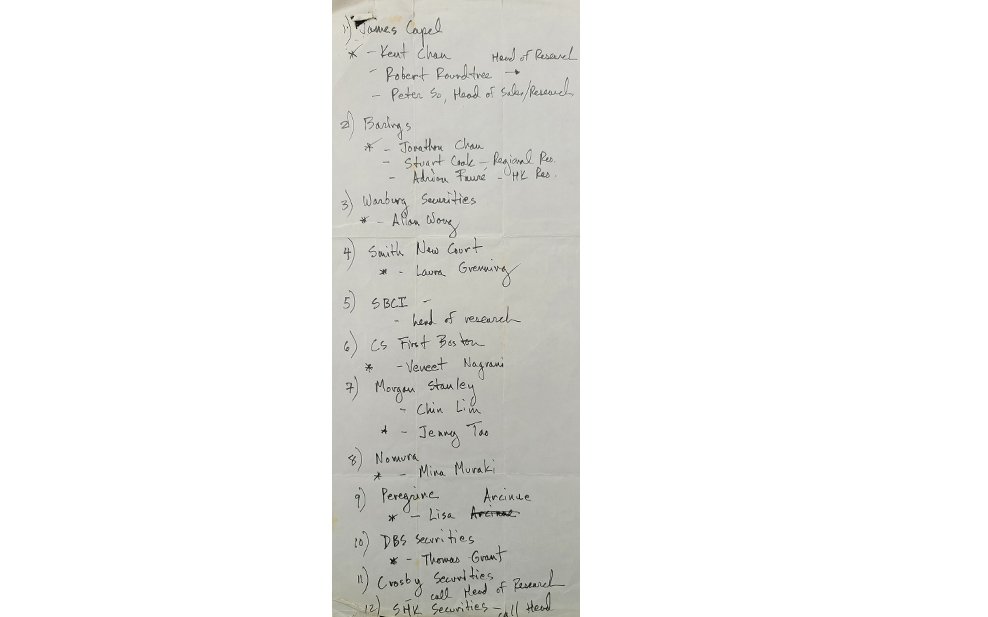 1) James Capel
* - Kent Chan
Head of Research
- Robert Roundtree →
- Peter So, Head of Sales/Research
2) Barings
* - Jonathon Chan
- Stuart Cook - Regional Res.
- Adrian Fauré - HK Res.
3) Warburg Securities
* - Allan Wong
4) Smith New Court
* - Laura Grenning
5) SBCI -
- head of research
6) CS First Boston
* - Veneet Nagrani
7) Morgan Stanley
- Chin Lim
* - Jenny Tao
8) Nomura
* - Mina Muraki
9) Peregrine Arcinue
* - Lisa
10) DBS Securities
* - Thomas Grant
11) Crosby Securities
call Head of Research
12) SHK Securities - call Head